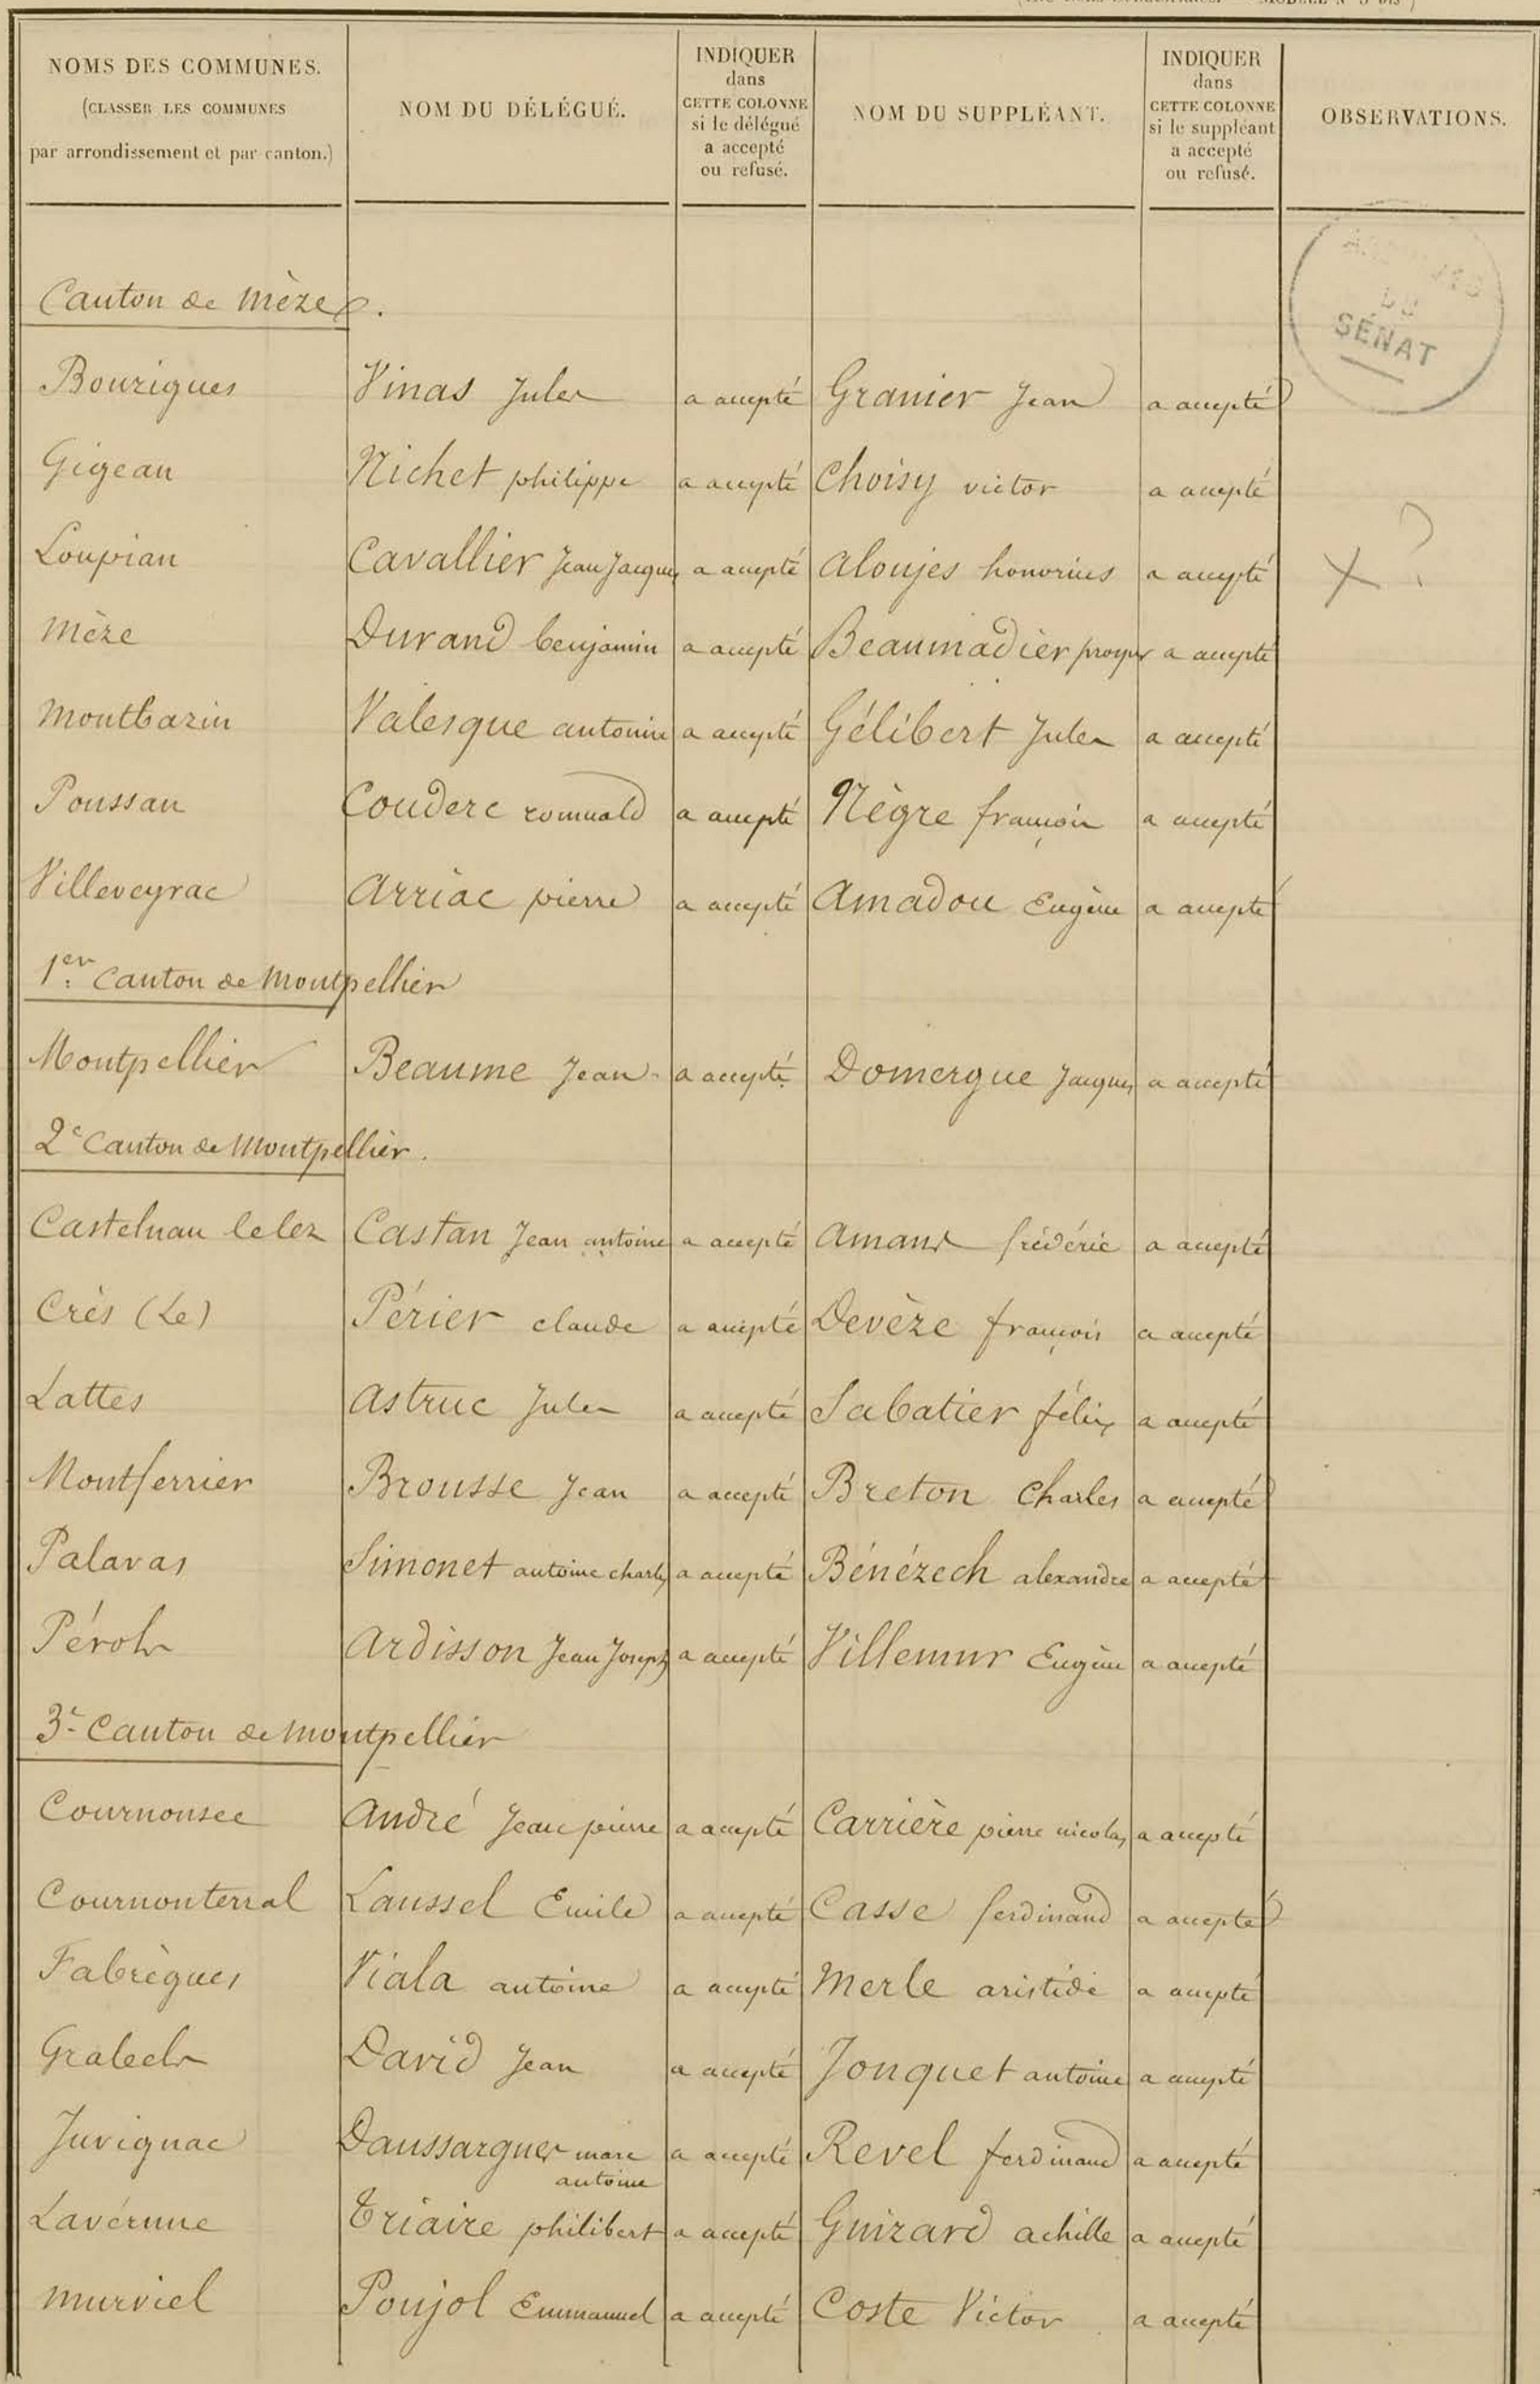 NOMS DES COMMUNES.
(CLASSER LES COMMUNES
par arrondissement et par canton.)
NOM DU DÉLÉGUÉ.
INDIQUER
dans
CETTE COLONNE
si le délégué
a accepté
ou refusé.
NOM DU SUPPLÉANT.
INDIQUER
dans
CETTE COLONNE
si le suppléant
a accepté
ou refusé.
OBSERVATIONS.
DU
SÉNAT
Canton de Mèze.
Bouzigues Vinas Jules a accepté Granier Jean a accepté
Gigean Nichet philippe a accepté Choisy victor a accepté
Loupian Cavallier Jean Jacques a accepté Aloujes honorius a accepté X ?
Mèze Durand benjamin a accepté Beaumadier prosper a accepté
Montbazin Valesque antonin a accepté Gélibert Jules a accepté
Poussan Couderc romuald a accepté Nègre françois a accepté
Villeveyrac Arriac pierre a accepté Amadou Eugène a accepté
1er Canton de Montpellier
Montpellier Beaume Jean a accepté Domergue Jacques a accepté
2e Canton de Montpellier.
Castelnau le lez Castan Jean antoine a accepté Amans frédéric a accepté
Crès (Le) Périer claude a accepté Devèze françois a accepté
Lattes Astruc Jules a accepté Sabatier félix a accepté
Montferrier Brousse Jean a accepté Breton Charles a accepté
Palavas Simonet antoine charles a accepté Bénézech alexandre a accepté
Pérols Ardisson Jean Joseph a accepté Villemur Eugène a accepté
3e Canton de Montpellier
Cournonsec André Jean pierre a accepté Carrière pierre nicolas a accepté
Cournonterral Laussel Emile a accepté Casse ferdinand a accepté
Fabrègues Viala antoine a accepté Merle aristide a accepté
Grabels David Jean a accepté Jonquet antoine a accepté
Juvignac Daussargues marc a accepté Revel ferdinand a accepté
antoine
Lavérune Triaire philibert a accepté Guizard achille a accepté
Murviel Poujol Emmanuel a accepté Coste Victor a accepté